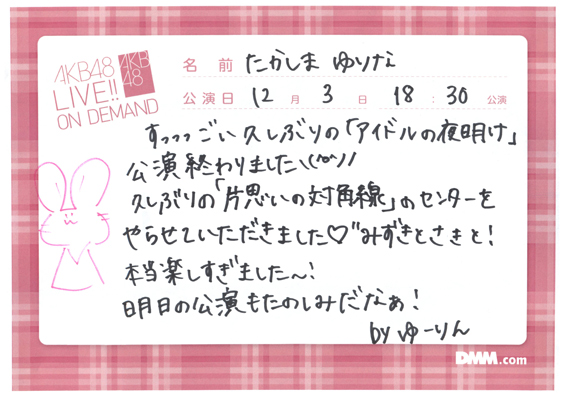 AKB48
LIVE!!
ON DEMAND
AKB
48
名前 たかしま ゆりな
公演日 12 月 3 日 18 : 30 公演
すっっっごい久しぶりの「アイドルの夜明け」
公演終わりました\(^o^)/
久しぶりの「片思いの対角線」のセンターを
やらせていただきました♡"みずきとさきと!
本当楽しすぎました〜!
明日の公演もたのしみだなぁ!
by ゆーりん
DMM.com